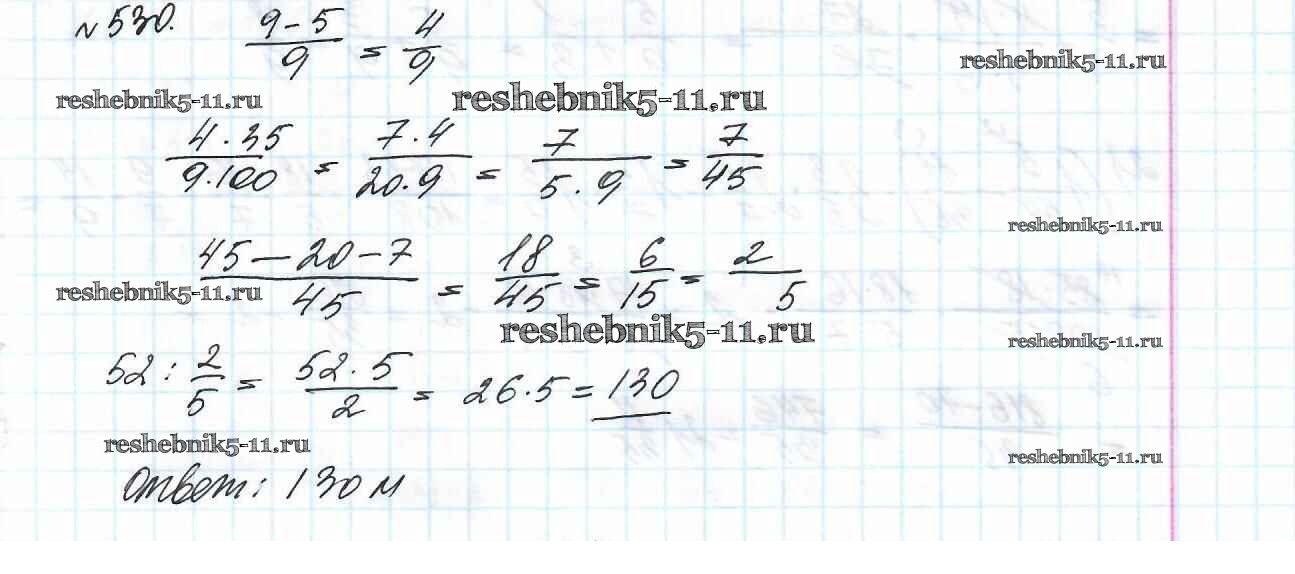 №530. (9-5)/9 = 4/9
reshebnik5-11.ru
reshebnik5-11.ru reshebnik5-11.ru
(4·35)/(9·100) = (7·4)/(20·9) = 7/(5·9) = 7/45
reshebnik5-11.ru
(45-20-7)/45 = 18/45 = 6/15 = 2/5
reshebnik5-11.ru
reshebnik5-11.ru reshebnik5-11.ru
52 : 2/5 = (52·5)/2 = 26·5 = 130
reshebnik5-11.ru
reshebnik5-11.ru
Ответ: 130 м